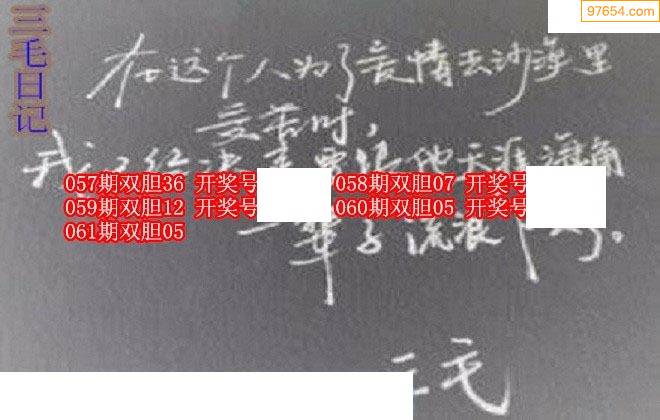 97654.com
三毛日记
在这个人为了爱情去沙漠里
受苦时,
我 已经决 跟 他天涯海角
057期双胆36 开奖号
058期双胆07 开奖号
059期双胆12 开奖号
060期双胆05 开奖号
061期双胆05
一辈子流浪下
三毛